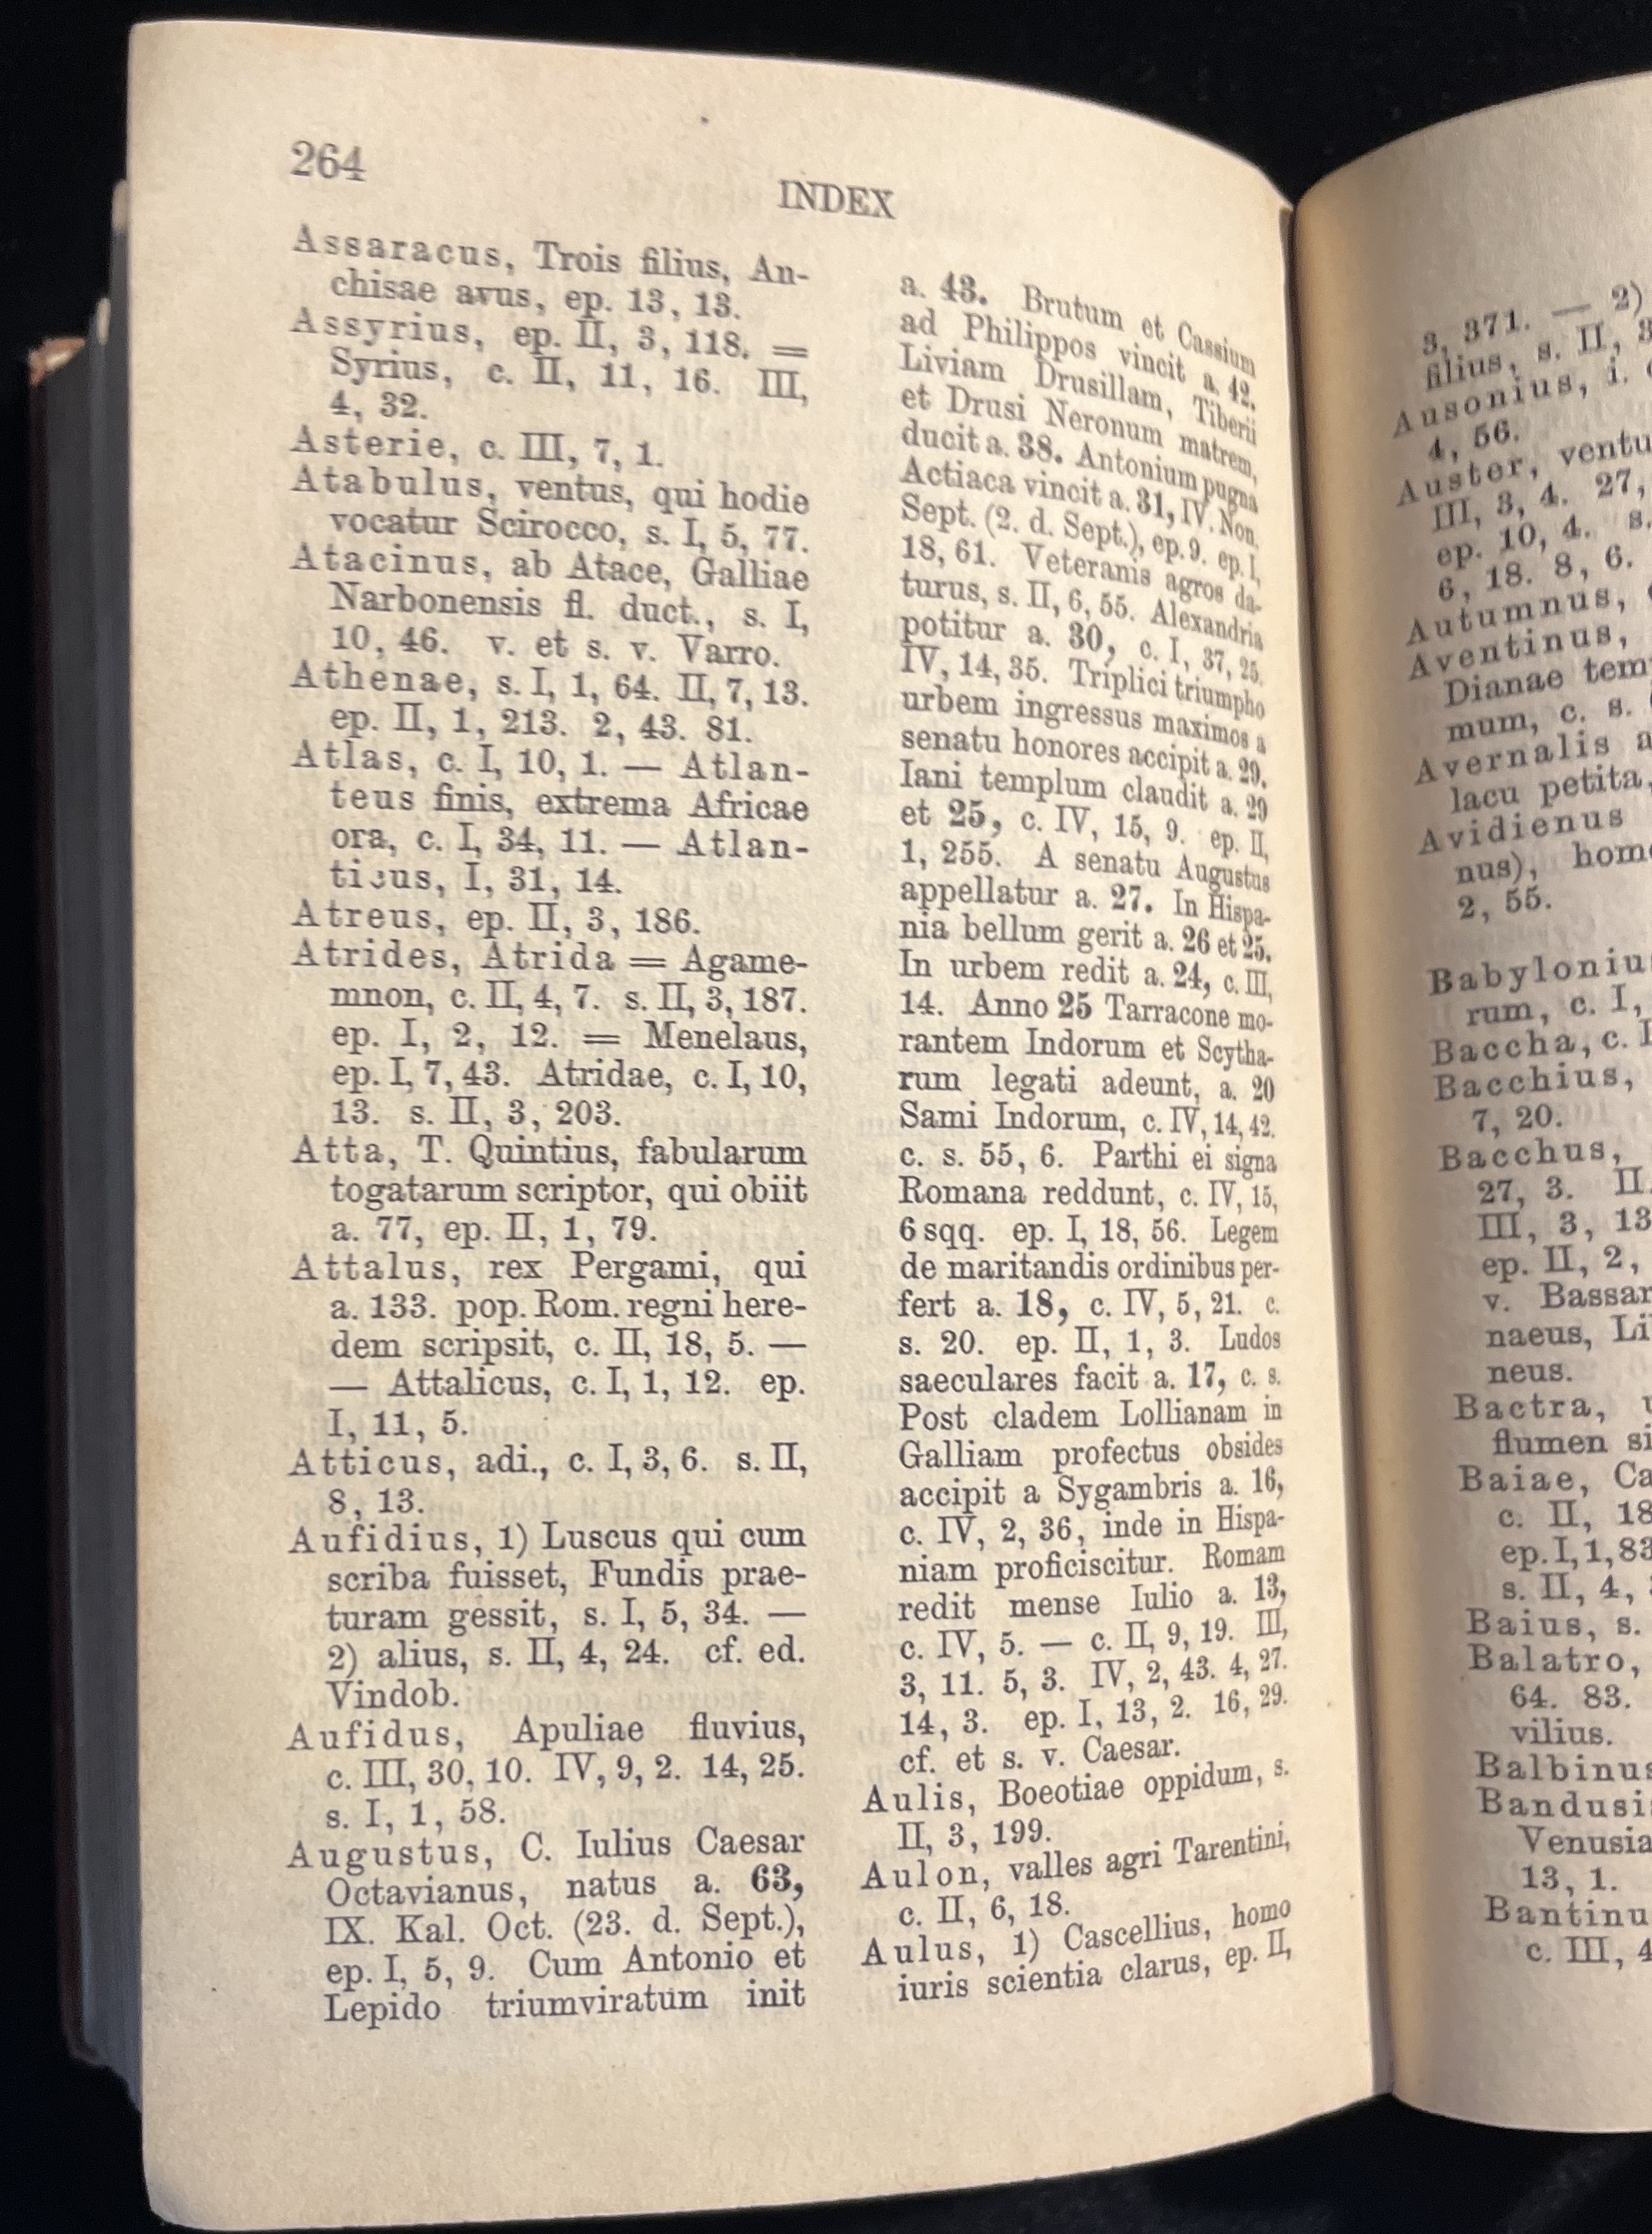 264
INDEX
Assaracus, Trois filius, An-
chisae avus, ep. 13, 13.
Assyrius, ep. II, 3, 118. =
Syrius, c. II, 11, 16. III,
4, 32.
Asterie, c. III, 7, 1.
Atabulus, ventus, qui hodie
vocatur Scirocco, s. I, 5, 77.
Atacinus, ab Atace, Galliae
Narbonensis fl. duct., s. I,
10, 46. v. et s. v. Varro.
Athenae, s. I, 1, 64. II, 7, 13.
ep. II, 1, 213. 2, 43. 81.
Atlas, c. I, 10, 1. — Atlan-
teus finis, extrema Africae
ora, c. I, 34, 11. — Atlan-
ticus, I, 31, 14.
Atreus, ep. II, 3, 186.
Atrides, Atrida = Agame-
mnon, c. II, 4, 7. s. II, 3, 187.
ep. I, 2, 12. = Menelaus,
ep. I, 7, 43. Atridae, c. I, 10,
13. s. II, 3, 203.
Atta, T. Quintius, fabularum
togatarum scriptor, qui obiit
a. 77, ep. II, 1, 79.
Attalus, rex Pergami, qui
a. 133. pop. Rom. regni here-
dem scripsit, c. II, 18, 5. —
— Attalicus, c. I, 1, 12. ep.
I, 11, 5.
Atticus, adi., c. I, 3, 6. s. II,
8, 13.
Aufidius, 1) Luscus qui cum
scriba fuisset, Fundis prae-
turam gessit, s. I, 5, 34. —
2) alius, s. II, 4, 24. cf. ed.
Vindob.
Aufidus, Apuliae fluvius,
c. III, 30, 10. IV, 9, 2. 14, 25.
s. I, 1, 58.
Augustus, C. Iulius Caesar
Octavianus, natus a. 63,
IX. Kal. Oct. (23. d. Sept.),
ep. I, 5, 9. Cum Antonio et
Lepido triumviratum init
a. 43. Brutum et Cassium
ad Philippos vincit a. 42.
Liviam Drusillam, Tiberii
et Drusi Neronum matrem,
ducit a. 38. Antonium pugna
Actiaca vincit a. 31, IV. Non.
Sept. (2. d. Sept.), ep. 9. ep. I,
18, 61. Veteranis agros da-
turus, s. II, 6, 55. Alexandria
potitur a. 30, c. I, 37, 25.
IV, 14, 35. Triplici triumpho
urbem ingressus maximos a
senatu honores accipit a. 29.
Iani templum claudit a. 29
et 25, c. IV, 15, 9. ep. II,
1, 255. A senatu Augustus
appellatur a. 27. In Hispa-
nia bellum gerit a. 26 et 25.
In urbem redit a. 24, c. III,
14. Anno 25 Tarracone mo-
rantem Indorum et Scytha-
rum legati adeunt, a. 20
Sami Indorum, c. IV, 14, 42.
c. s. 55, 6. Parthi ei signa
Romana reddunt, c. IV, 15,
6 sqq. ep. I, 18, 56. Legem
de maritandis ordinibus per-
fert a. 18, c. IV, 5, 21. c.
s. 20. ep. II, 1, 3. Ludos
saeculares facit a. 17, c. s.
Post cladem Lollianam in
Galliam profectus obsides
accipit a Sygambris a. 16,
c. IV, 2, 36, inde in Hispa-
niam proficiscitur. Romam
redit mense Iulio a. 13,
c. IV, 5. — c. II, 9, 19. III,
3, 11. 5, 3. IV, 2, 43. 4, 27.
14, 3. ep. I, 13, 2. 16, 29.
cf. et s. v. Caesar.
Aulis, Boeotiae oppidum, s.
II, 3, 199.
Aulon, valles agri Tarentini,
c. II, 6, 18.
Aulus, 1) Cascellius, homo
iuris scientia clarus, ep. II,
3, 371. — 2)
filius, s. II, 3
Ausonius, i.
4, 56.
Auster, ventu
III, 3, 4. 27,
ep. 10, 4. s.
6, 18. 8, 6.
Autumnus,
Aventinus,
Dianae tem
mum, c. s.
Avernalis a
lacu petita,
Avidienus
nus), hom
2, 55.
Babyloniu
rum, c. I,
Baccha, c. I
Bacchius,
7, 20.
Bacchus,
27, 3. II
III, 3, 13
ep. II, 2,
v. Bassar
naeus, Li
neus.
Bactra,
flumen si
Baiae, Ca
c. II, 18
ep. I, 1, 83
s. II, 4,
Baius, s.
Balatro,
64. 83.
vilius.
Balbinus
Bandusi
Venusia
13, 1.
Bantinu
c. III, 4